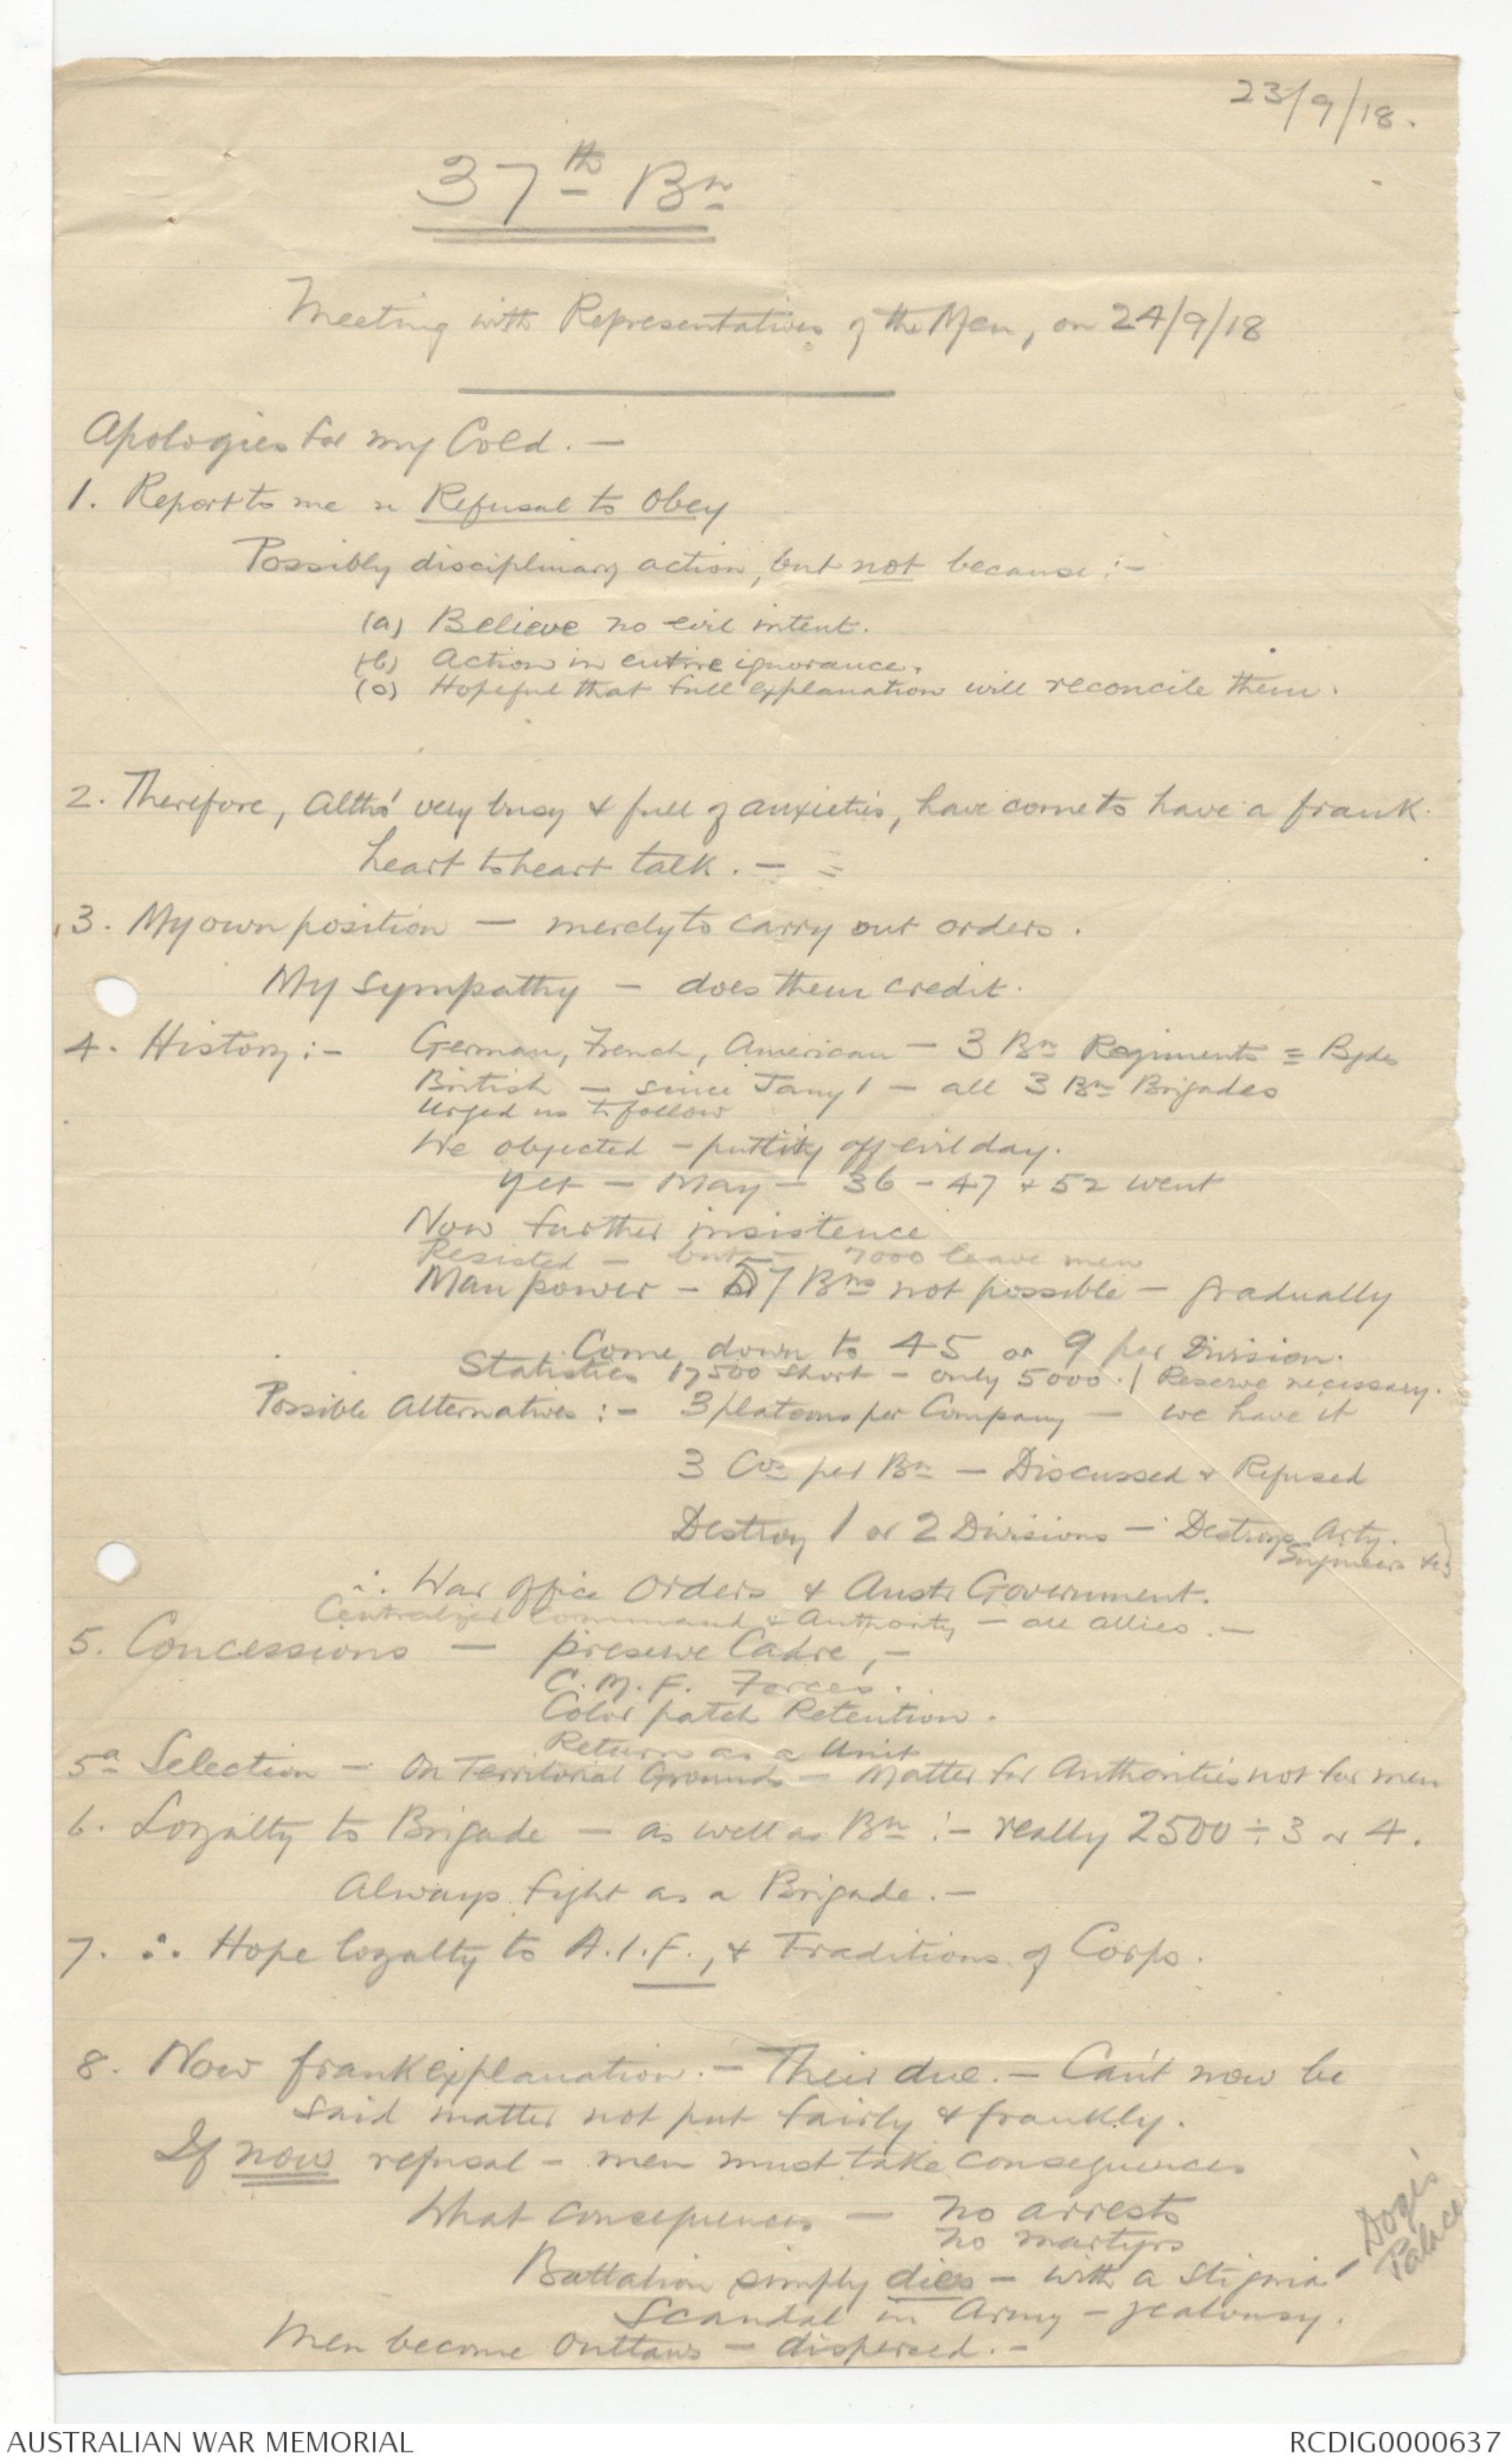 23/9/18.
37th Bn
Meeting with Representatives of the Men, on 24/9/18
Apologies for my Cold. —
1. Report to me re Refusal to Obey
Possibly disciplinary action, but not because :-
(a) Believe no evil intent.
(b) Action in entire ignorance.
(c) Hopeful that full explanation will reconcile them.
2. Therefore, altho' very busy & full of anxieties, have come to have a frank
heart to heart talk. —
3. My own position — merely to carry out orders.
My sympathy — does them credit.
4. History :- German, French, American — 3 Bn Regiments = Bgdes
British — since Jany 1 — all 3 Bn Brigades
Urged us to follow
We objected — putting off evil day.
Yet — May — 36 - 47 & 52 went
Now further insistence
Resisted — but — 7000 leave men
Man power — 57 Bns not possible — gradually
Come down to 45 or 9 per Division.
Statistics 17500 short — only 5000. / Reserve necessary.
Possible Alternatives :- 3 platoons per Company — we have it
3 Cos per Bn — Discussed & Refused
Destroy 1 or 2 Divisions — Destroys Arty.
Engineers &c
∴ War Office Orders & Austr Government.
Centralized Command & Authority — all allies. —
5. Concessions — preserve Cadre, —
C.M.F. Forces.
Color patch Retention.
Return as a Unit
5a Selection — On Territorial Grounds — Matter for Authorities not for men
6. Loyalty to Brigade — as well as Bn :- really 2500 ÷ 3 or 4.
Always fight as a Brigade. —
7. ∴ Hope loyalty to A.I.F., & Traditions of Corps.
8. Now frank explanation. — Their due. — Can't now be
said matter not put fairly & frankly.
If now refusal — men must take consequences
What consequences — no arrests
no martyrs
Battalion simply dies — with a stigma
Doge's
Palace
Scandal in Army — jealousy.
Men become Outlaws — dispersed. —
AUSTRALIAN WAR MEMORIAL
RCDIG0000637